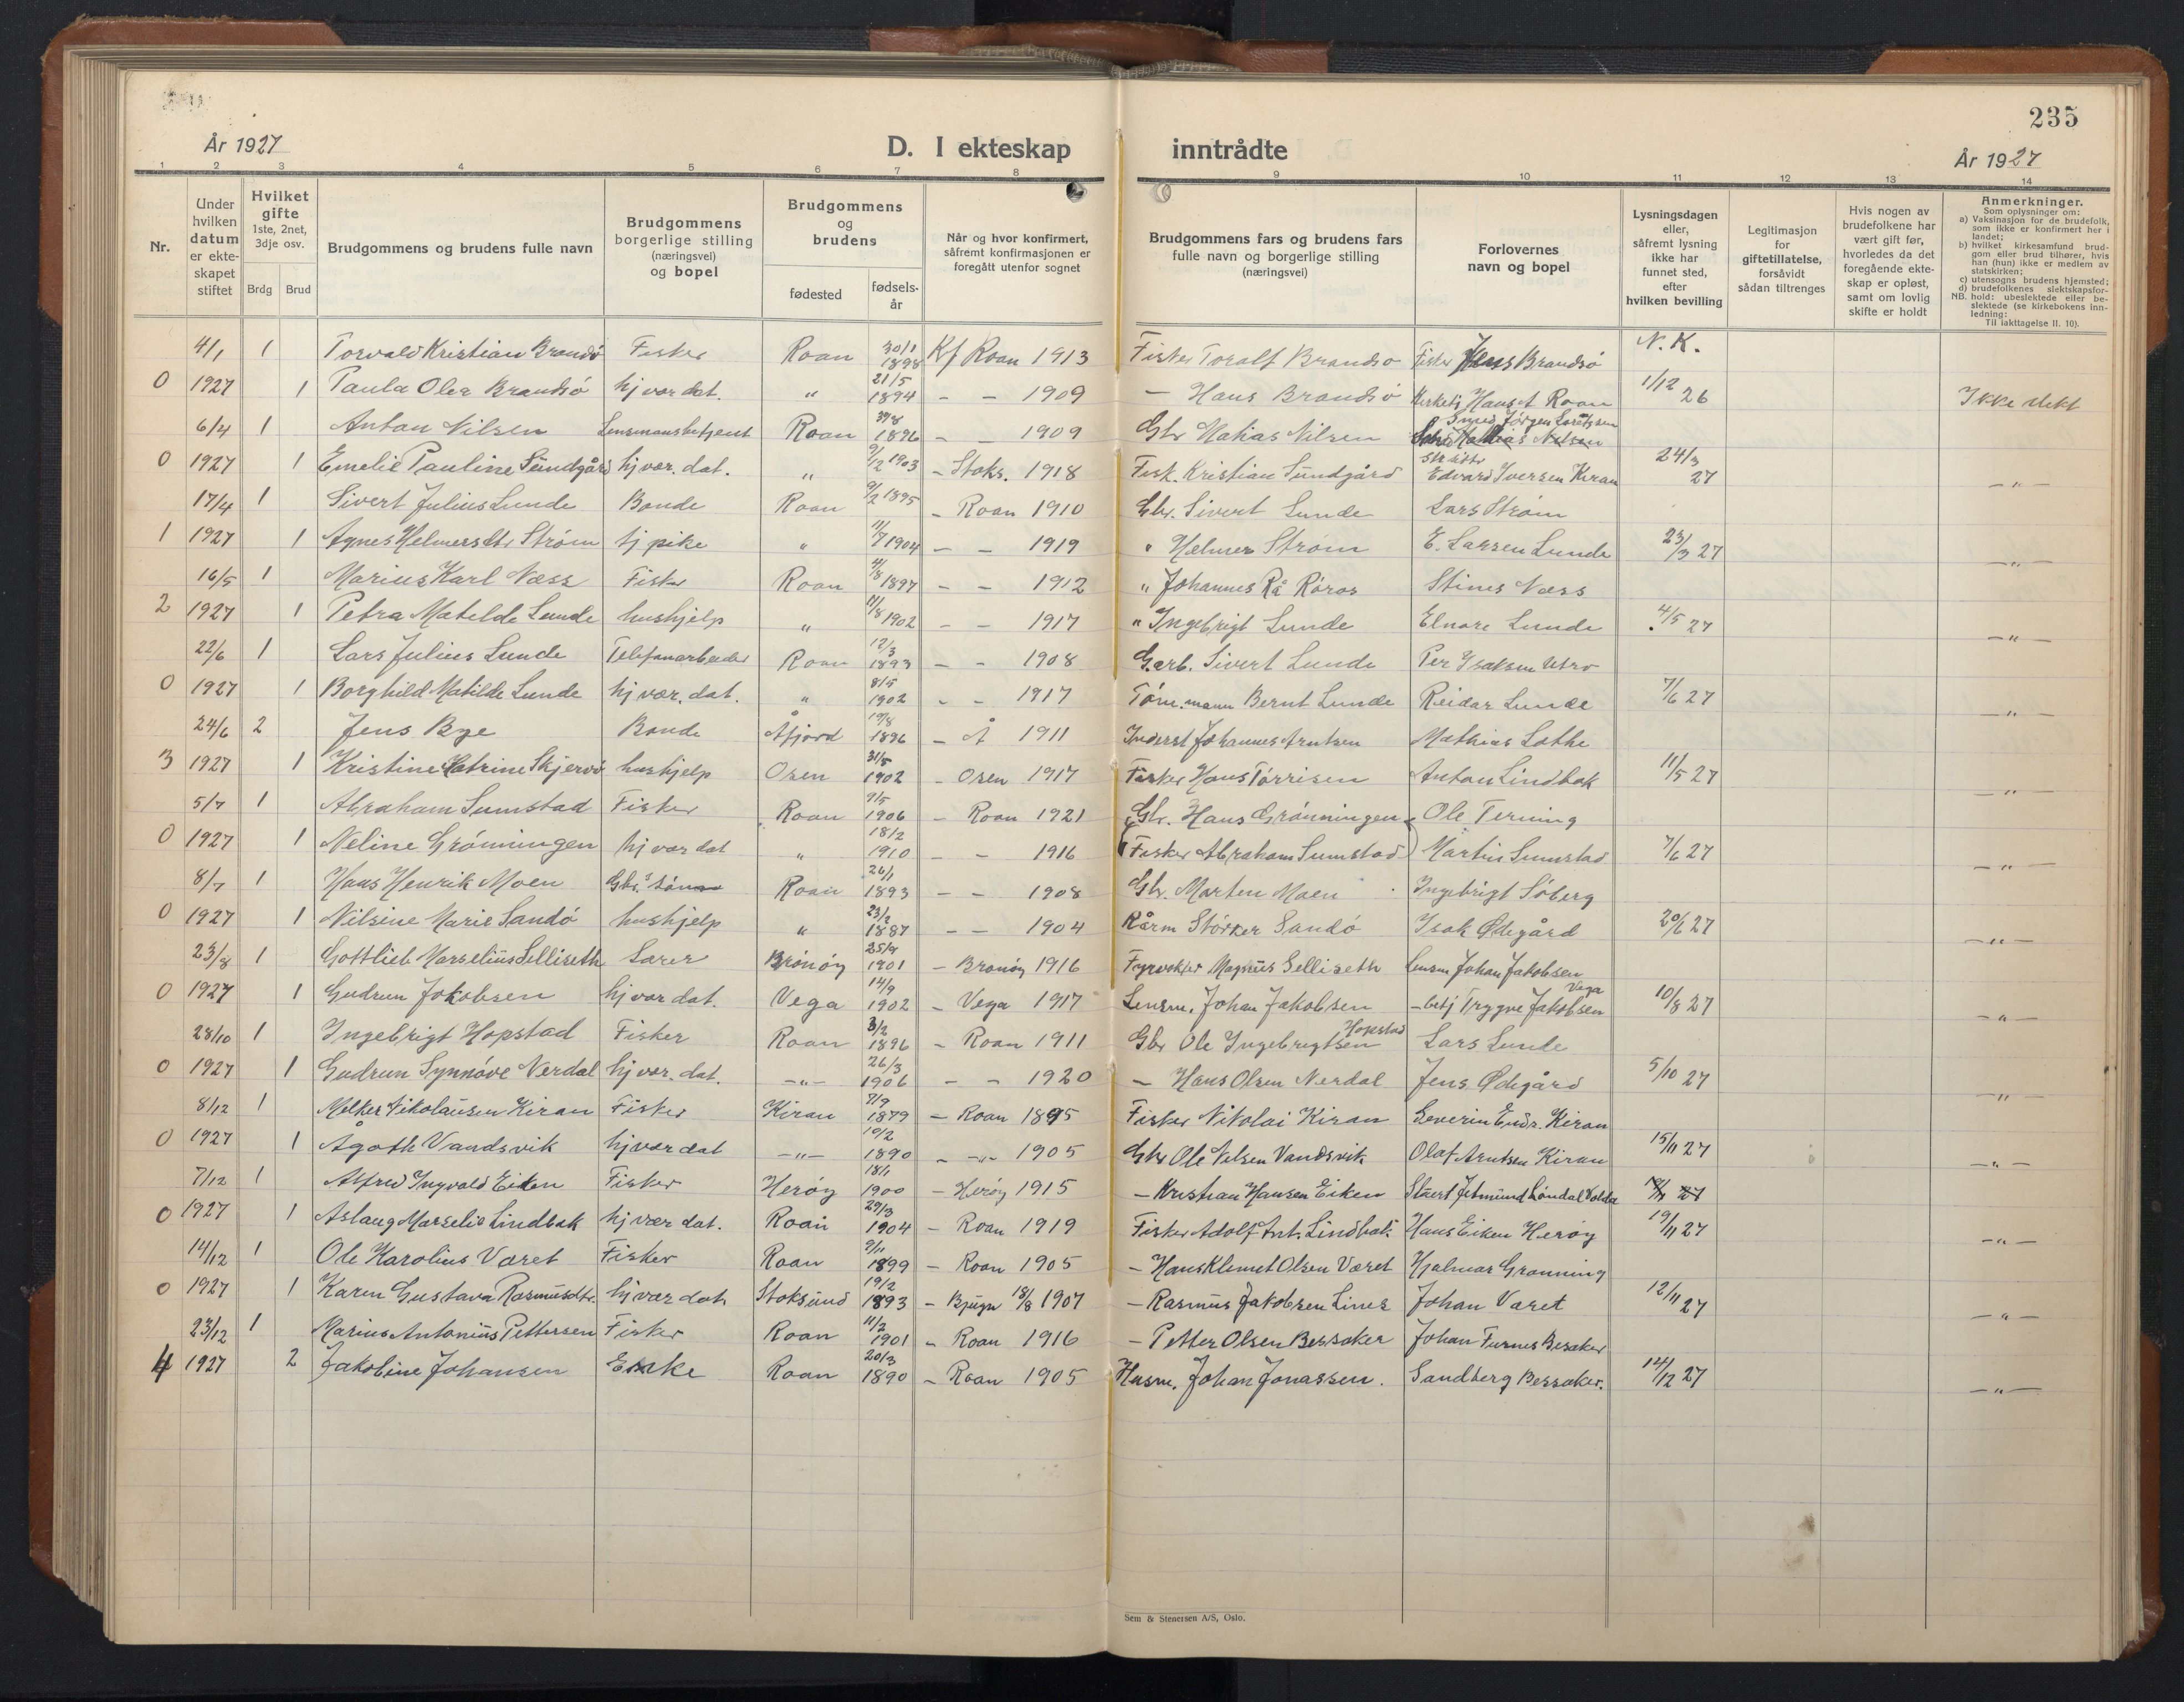 235
År 1927
D. I ekteskap inntrådte
År 1927
1 2 3 4 5 6 7 8 9 10 11 12 13 14
Nr.
Under hvilken datum er ekteskapet stiftet
Hvilket gifte 1ste, 2net, 3dje osv.
Brdg Brud
Brudgommens og brudens fulle navn
Brudgommens borgerlige stilling (næringsvei) og bopel
Brudgommens og brudens
fødested
fødselsår
Når og hvor konfirmert, såfremt konfirmasjonen er foregått utenfor sognet
Brudgommens fars og brudens fars fulle navn og borgerlige stilling (næringsvei)
Forlovernes navn og bopel
Lysningsdagen eller, såfremt lysning ikke har funnet sted, efter hvilken bevilling
Legitimasjon for giftetillatelse, forsåvidt sådan tiltrenges
Hvis nogen av brudefolkene har vært gift før, hvorledes da det foregående ekteskap er opløst, samt om lovlig skifte er holdt
Anmerkninger.
Som oplysninger om:
a) Vaksinasjon for de brudefolk, som ikke er konfirmert her i landet;
b) hvilket kirkesamfund brudgom eller brud tilhører, hvis han (hun) ikke er medlem av statskirken;
c) utensogns brudens hjemsted;
d) brudefolkenes slektskapsforhold: ubeslektede eller beslektede (se kirkebokens innledning:
NB.
Til iakttagelse II. 10).
4/1 1 Torvald Kristian Brandsø Fisker Roan 30/1 1898 Kf Roan 1913 Fisker Toralf Brandsø Fisker Jens Brandsø N. K.
0 1927 1 Paula Olea Brandsø hj vær dat. " 21/5 1894 - - 1909 - Hans Brandsø Kirketj Hanset Roan 1/12 26 Ikke slekt
6/4 1 Anton Nilsen Lensmansbetjent Roan 1896 - - 1909 Gbr Matias Nilsen
0 1927 1 Emelie Pauline Sundgård hj vær. dat. " 9/12 1903 - Stoks. 1918 Fisk. Kristian Sundgård Edvard Iversen Kiran 24/3 27 - " -
17/4 1 Sivert Julius Lunde Bonde Roan 9/2 1895 - Roan 1910 Gbr. Sivert Lunde Lars Strøm
1 1927 1 Agnes Helmersdtr Strøm tj pike " 11/7 1904 - - 1919 " Helmer Strøm E. Larsen Lunde 23/3 27 - " -
16/5 1 Marius Karl Næss Fisker Roan 4/8 1897 - - 1912 " Johannes Rå Røros Stines Næss
2 1927 1 Petra Matilde Lunde hushjelp " 11/8 1902 - - 1917 " Ingebrigt Lunde Elnare Lunde 4/5 27 - " -
22/6 1 Lars Julius Lunde Telefonarbeider Roan 12/3 1893 - - 1908 Garb. Sivert Lunde Per Isaksen Utro
0 1927 1 Borghild Matilde Lunde hj vær. dat. " 8/5 1902 - - 1917 Tøm.mann Bernt Lunde Reidar Lunde 7/6 27 - " -
24/6 2 Jens Bye Bonde Åfjord 19/8 1896 - Å 1911 Inderst Johannes Arntsen Mathias Lothe
3 1927 1 Kristine Katrine Skjervø hushjelp Osen 31/5 1902 - Osen 1917 Fisker Hans Tørrisen Anton Lindbak 11/5 27 - " -
5/7 1 Abraham Sumstad Fisker Roan 9/5 1906 - Roan 1921 Gbr. Hans Grønningen Ole Terning
0 1927 1 Neline Grønningen hj vær dat " 18/2 1910 - - 1916 Fisker Abraham Sumstad Martin Sumstad 7/6 27 - " -
8/7 1 Hans Henrik Moen Gbr.s sønn Roan 26/1 1893 - - 1908 Gbr. Morten Moen Ingebrigt Söberg
0 1927 1 Nilsine Marie Sandö hushjelp " 23/2 1887 - - 1904 Kårm Störker Sandö Isak Ödegård 20/6 27 - " -
23/8 1 Gottlieb Marselius Selliseth Lærer Brönöy 1901 - Brønøy 1916 Fyrvokter Magnus Selliseth Lensm Johan Jakobsen
0 1927 1 Gudrun Jakobsen hj vær dat. Vega 14/9 1902 - Vega 1917 Lensm. Johan Jakobsen - betj Trygve Jakobsen Vega 10/8 27 - " -
28/10 1 Ingebrigt Hopstad Fisker Roan 3/2 1896 - Roan 1911 Gbr Ole Ingebrigtsen Hopstad Lars Lunde
0 1927 1 Gudrun Synnöve Nerdal hj vær. dat. - " - 26/3 1906 - - 1920 - Hans Olsen Nerdal Jens Ødegård 5/10 27 - " -
8/12 1 Melker Nikolausen Kiran Fisker Kiran 7/9 1879 - Roan 1895 Fisker Nikolai Kiran Severin Endr. Kiran
0 1927 1 Ågoth Vandsvik hj vær dat - " - 19/2 1890 - - " - 1905 Gbr Ole Nilsen Vandsvik Olaf Arntsen Kiran 15/11 27 - " -
7/12 1 Alfred Ingvald Eiken Fisker Herøy 18/1 1900 - Herøy 1915 - Kristian Hansen Eiken
0 1927 1 Aslaug Marselie Lindbak hj vær dat. Roan 29/3 1904 - Roan 1919 Fisker Adolf Ant. Lindbak Hans Eiken Herøy 19/11 27 - " -
14/12 1 Ole Karolius Været Fisker Roan 9/11 1899 - Roan 1905 - Hans Klemet Olsen Været Hjalmar Grønning
0 1927 1 Karen Gustava Rasmusdtr. hj vær dat Stoksund 19/2 1893 - Bjugn 18/8 1907 - Rasmus Jakobsen Lines Johan Været 12/11 27 - " -
23/12 1 Marius Antonius Pettersen Fisker Roan 11/2 1901 - Roan 1916 - Petter Olsen Bessaker Johan Furnes Besaker
4 1927 2 Jakobine Johansen Enke Roan 20/3 1890 - Roan 1905 Husm. Johan Jonassen. Sandberg Bessaker. 14/12 27 - " -
Sem & Stenersen A/S, Oslo.